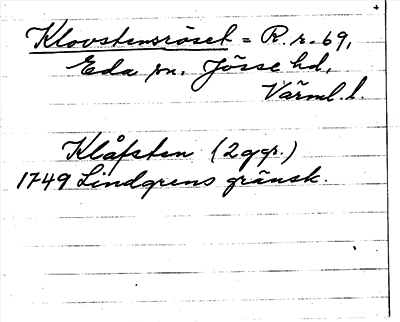 Klovstensröset = R.r. 69,
Eda sn. Jösse hd,
Värml. l.
Klåfsten (2 ggr.)
1749 Lindgrens gränsk.